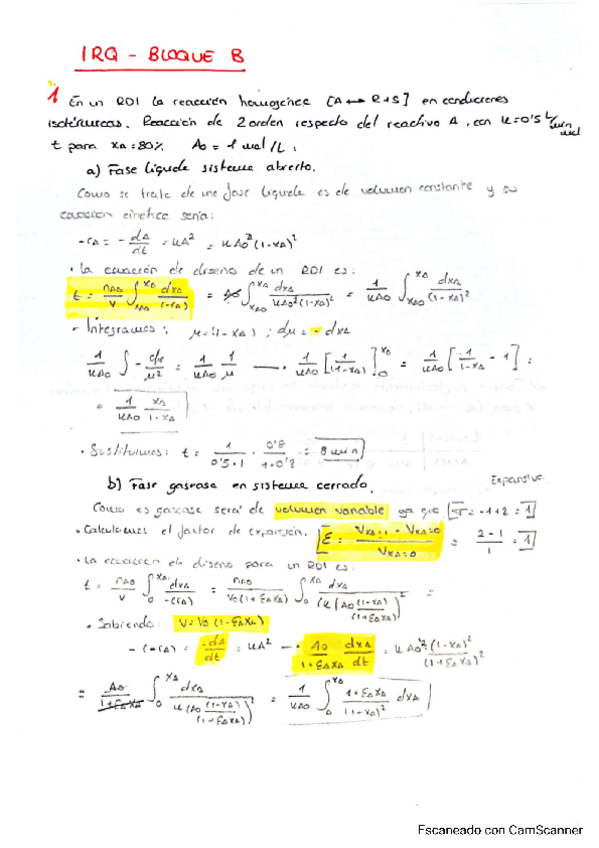 IRQ - BLOQUE B
1 En un RDI la reacción homogénea [A ↔ R+S] en condiciones
isotérmicas. Reacción de 2 orden respecto del reactivo A, con k=0'5 L/min mol
t para xA=80% A0 = 1 mol/L.
a) Fase líquida sistema abierto.
Como se trata de una fase líquida es de volumen constante y su
ecuación cinética sería:
-rA = -dA/dt = kA² = kA0²(1-xA)²
· La ecuación de diseño de un RDI es:
t = nA0/V ∫xA0^xA dxA/(-rA) = A0 ∫xA0^xA dxA/kA0²(1-xA)² = 1/kA0 ∫xA0^xA dxA/(1-xA)²
- Integramos: μ=(1-xA); dμ = -dxA
1/kA0 ∫ -dμ/μ² = 1/kA0 1/μ → 1/kA0 [1/(1-xA)]0^xA = 1/kA0 [1/1-xA - 1] =
= 1/kA0 xA/1-xA
· Sustituimos: t = 1/0'5·1 · 0'8/1-0'8 = 8 min
b) Fase gaseosa en sistema cerrado. Expansivo
Como es gaseosa será de volumen variable ya que [σ = -1+2 = 1]
· Calculamos el factor de expansión. [ε = VxA=1 - VxA=0 / VxA=0 = 2-1/1 = 1]
· La ecuación de diseño para un RDI es:
t = nA0/V ∫0^xA dxA/-(rA) = nA0/V0(1+εAxA) ∫0^xA dxA/(k[A0(1-xA)/(1+εAxA)]² =
· Sabiendo: V=V0(1-εAxA)
-(-rA) = -dA/dt = kA² → A0/1+εAxA dxA/dt = kA0² (1-xA)²/(1+εAxA)²
= A0/1+εAxA ∫0^xA dxA/k(A0(1-xA)/(1+εAxA))² = 1/kA0 ∫0^xA 1+εAxA/(1-xA)² dxA
Escaneado con CamScanner